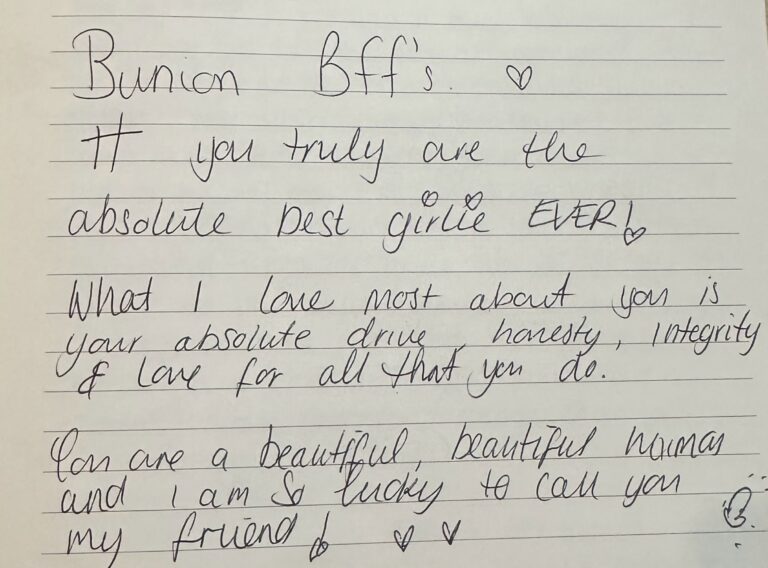 Bunion Bff's. ♡
TT you truly are the
absolute best girlie EVER!
What I love most about you is
your absolute drive, honesty, integrity
& love for all that you do.
You are a beautiful, beautiful human
and I am so lucky to call you
my friend! ♡ ♡